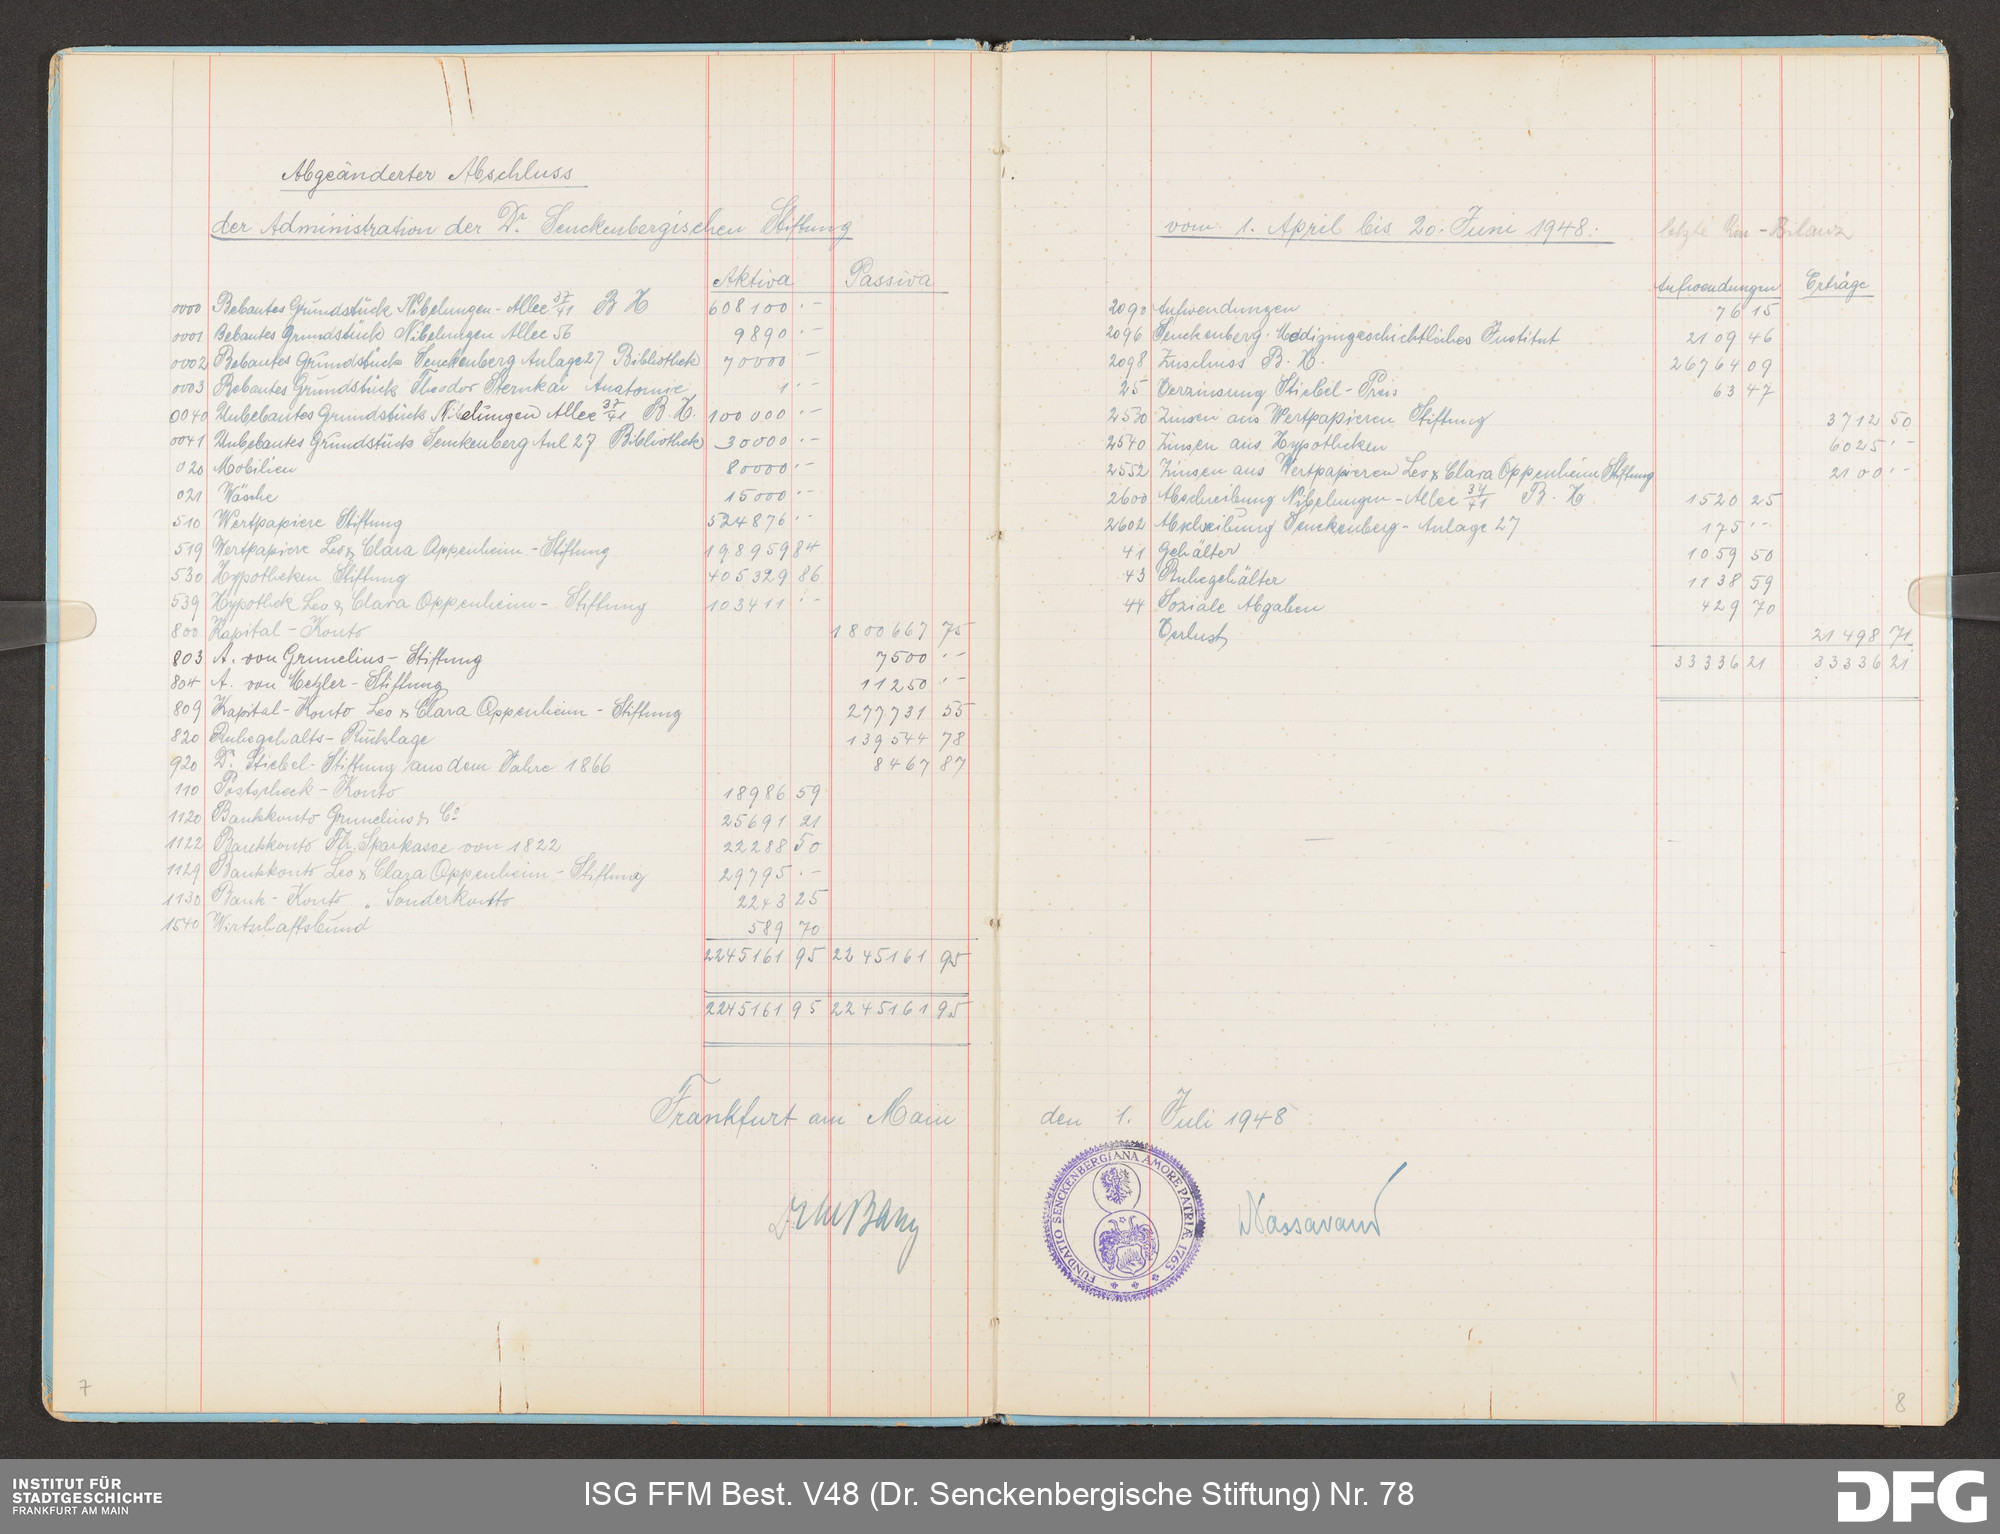 Abgeänderter Abschluss
der Administration der Dr. Senckenbergischen Stiftung
Aktiva Passiva
0000 Bebautes Grundstück Nibelungen-Allee 37/41 B H 608100.–
0001 Bebautes Grundstück Nibelungen Allee 56 9890.–
0002 Bebautes Grundstück Senckenberg Anlage 27 Bibliothek 70000.–
0003 Bebautes Grundstück Theodor Sternkai Anatomie 1.–
0040 Unbebautes Grundstück Nibelungen Allee 37/41 B.H. 100000.–
0041 Unbebautes Grundstück Senckenberg Anl 27 Bibliothek 30000.–
020 Mobilien 80000.–
021 Wäsche 15000.–
510 Wertpapiere Stiftung 524876.–
519 Wertpapiere Leo & Clara Oppenheim-Stiftung 198959 84
530 Hypotheken Stiftung 405329 86
539 Hypothek Leo & Clara Oppenheim-Stiftung 103411.–
800 Kapital-Konto 1800667 75
803 A. von Grunelius-Stiftung 7500.–
804 A. von Metzler-Stiftung 11250.–
809 Kapital-Konto Leo & Clara Oppenheim-Stiftung 277731 55
820 Ruhegehalts-Rücklage 139544 78
920 Dr. Stiebel-Stiftung aus dem Jahre 1866 8467 87
110 Postscheck-Konto 18986 59
1120 Bankkonto Grunelius & Co 25691 21
1122 Bankkonto Fr. Sparkasse von 1822 22288 50
1129 Bankkonto Leo & Clara Oppenheim-Stiftung 29795.–
1130 Bank-Konto „ Sonderkonto 2243 25
1540 Wirtschaftsbund 589 70
2245161 95 2245161 95
2245161 95 2245161 95
Frankfurt am Main
7
vom 1. April bis 20. Juni 1948. letzte Rm-Bilanz
Aufwendungen Erträge
2090 Aufwendungen 76 15
2096 Senckenberg. Medizingeschichtliches Institut 2109 46
2098 Zuschuss B. H. 26764 09
25 Verzinsung Stiebel-Preis 63 47
2530 Zinsen aus Wertpapieren Stiftung 3712 50
2540 Zinsen aus Hypotheken 6025.–
2552 Zinsen aus Wertpapieren Leo & Clara Oppenheim Stiftung 2100.–
2600 Abschreibung Nibelungen-Allee 37/41 B. H. 1520 25
2602 Abschreibung Senckenberg-Anlage 27 175.–
41 Gehälter 1059 50
43 Ruhegehälter 1138 59
44 Soziale Abgaben 429 70
Verlust 21498 71
33336 21 33336 21
den 1. Juli 1948
FUNDATIO SENCKENBERGIANA AMORE PATRIÆ 1763
8
INSTITUT FÜR
STADTGESCHICHTE
FRANKFURT AM MAIN
ISG FFM Best. V48 (Dr. Senckenbergische Stiftung) Nr. 78
DFG